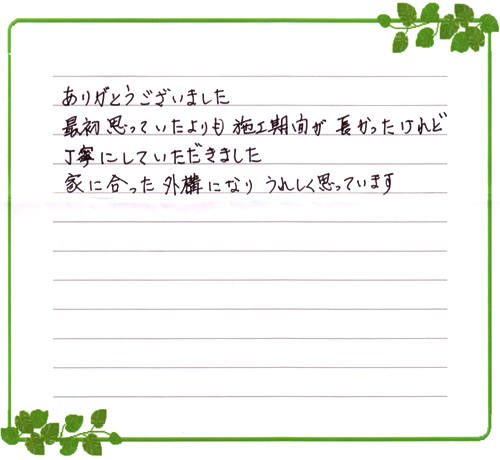 ありがとうございました
最初思っていたよりも施工期間が長かったけれど
丁寧にしていただきました
家に合った外構になりうれしく思っています